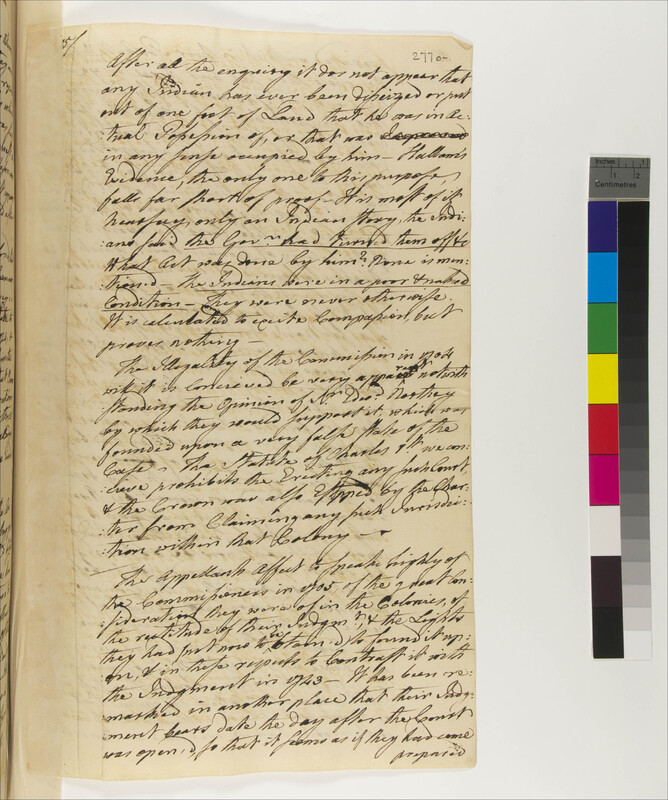 5/
2770-
After all the enquiry it does not appear that
any Indian has ever been disseized or put
out of one foot of Land that he was in Ac-
:tual Possession of, or that was
in any sense occupied by him — Hallam's
Evidence, the only one to this purpose,
falls far short of proof — It is most of it
hearsay, only an Indian Story, the Indi-
:ans said the Govr. had turn'd them off &c
What Act was done by him? None is men-
:tion.d — the Indians were in a poor & naked
Condition — They were never otherwise.
It is calculated to excite Compassion, but
proves nothing —
The Illegality of the Commission in 1704
will it is conceived be very apparent notwith
standing the Opinion of Sr. Edwd. Northey
by which they would support it, which was
founded upon a very false State of the
Case. The Statute of Charles 1st. we con-
:ceive prohibits the Erecting any such Court
& the Crown was also Estoped by the Char-
:ter from Claiming any such Jurisdic-
:tion within that Colony —
The Appellants Affect to speak highly of
the Commissioners in 1705, of the great Con-
:sideration they were of in the Colonies, of
the rectitude of their Judgmt., & the Lights
they had put now to be obtain.d, to found it up-
:on, & in these respects to Contrast it with
the Judgment in 1743 — It has been re-
:marked in another place that their Judg-
:ment bears date the day after the Court
was open.d, so that it seems as if they had come
prepared